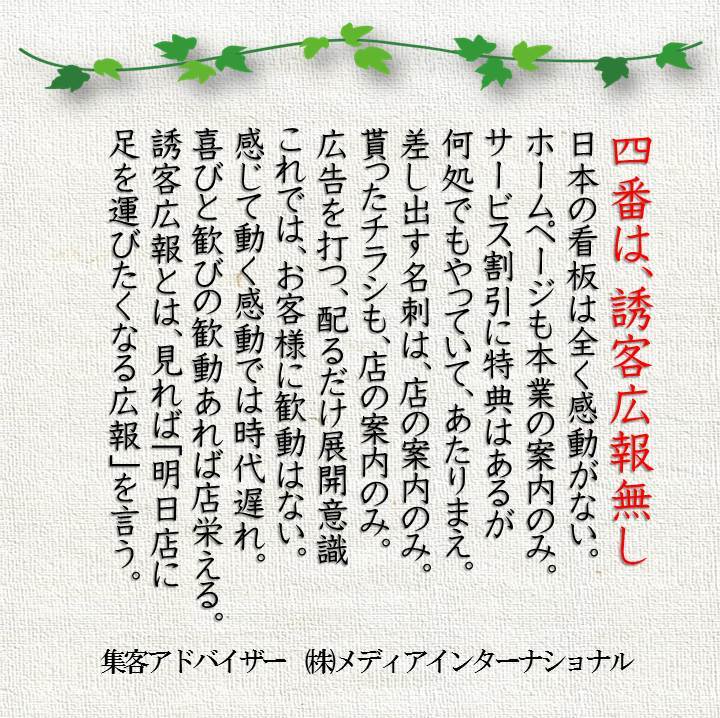 四番は、誘客広報無し
日本の看板は全く感動がない。
ホームページも本業の案内のみ。
サービス割引に特典はあるが
何処でもやっていて、あたりまえ。
差し出す名刺は、店の案内のみ。
貰ったチラシも、店の案内のみ。
広告を打つ、配るだけ展開意識
これでは、お客様に歓動はない。
感じて動く感動では時代遅れ。
喜びと歓びの歓動あれば店栄える。
誘客広報とは、見れば「明日店に
足を運びたくなる広報」を言う。
集客アドバイザー ㈱メディアインターナショナル